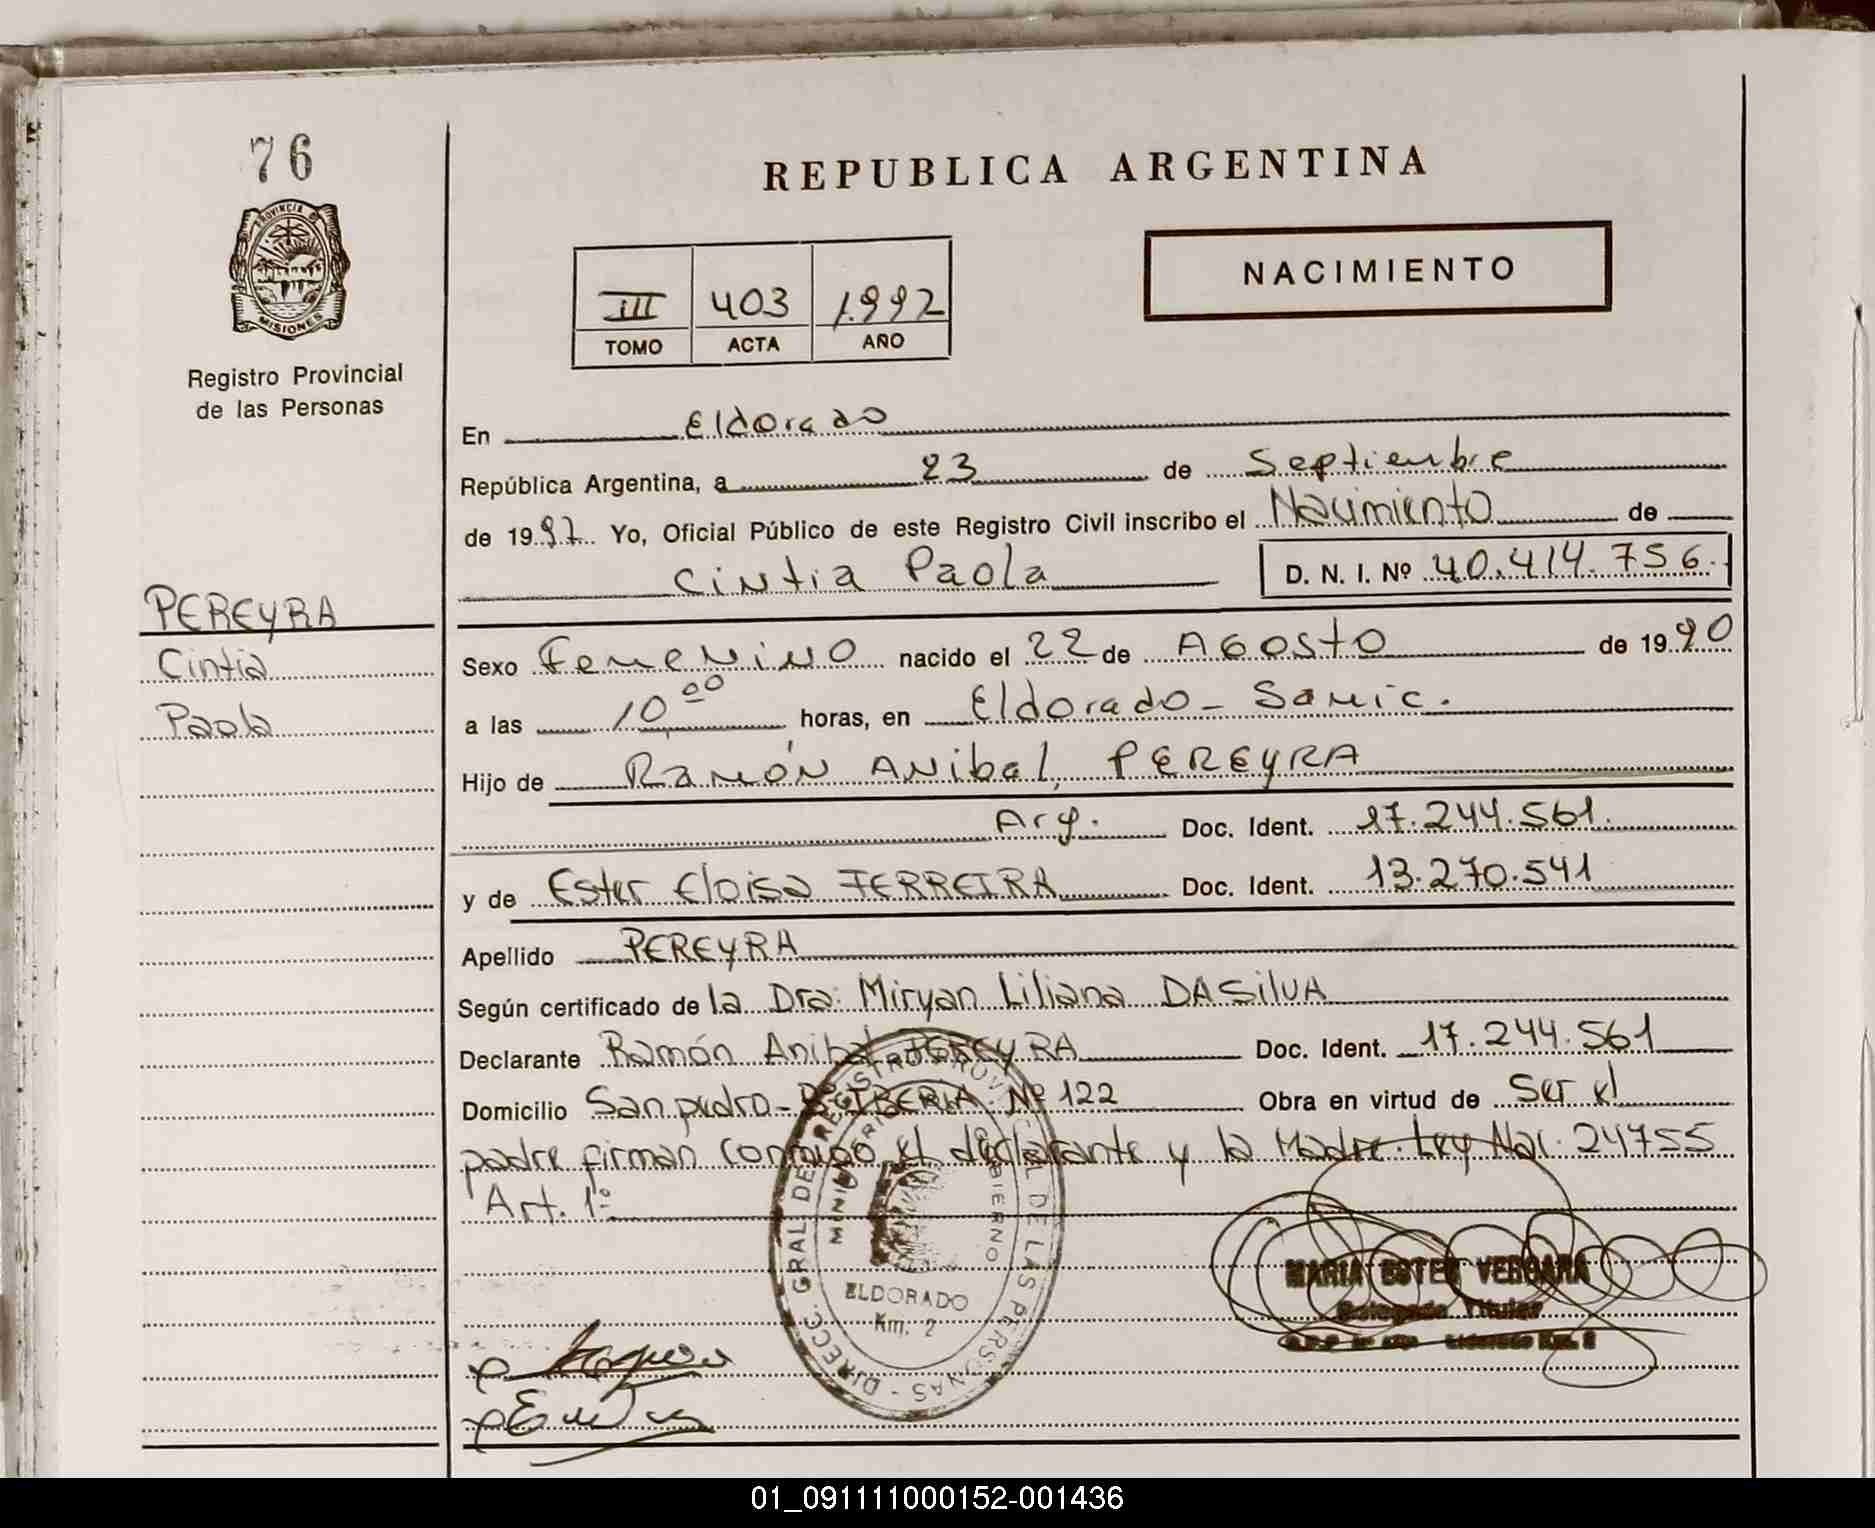 76
PROVINCIA DE
MISIONES
Registro Provincial
de las Personas
REPUBLICA ARGENTINA
III 403 1.992
TOMO ACTA AÑO
NACIMIENTO
En Eldorado
República Argentina, a 23 de Septiembre
de 1997 Yo, Oficial Público de este Registro Civil inscribo el Nacimiento de
Cintia Paola D. N. I. Nº 40.414.756.
PEREYRA
Cintia
Paola
Sexo Femenino nacido el 22 de Agosto de 1990
a las 10,00 horas, en Eldorado - Samic.
Hijo de Ramón Anibal, PEREYRA
Arg. Doc. Ident. 17.244.561.
y de Ester Eloisa FERREIRA Doc. Ident. 13.270.541
Apellido PEREYRA
Según certificado de la Dra: Miryan Liliana DASILVA
Declarante Ramón Anibal PEREYRA Doc. Ident. 17.244.561
Domicilio San pedro - Bº IBERIA Nº 122 Obra en virtud de Ser el
padre firman conmigo el declarante y la Madre Ley Nac. 24755
Art. 1º
DIRECC. GRAL DEL REGISTRO PROVINCIAL DE LAS PERSONAS
ELDORADO
Km. 2
MARIA ESTER VERGARA
Delegado Titular
01_091111000152-001436